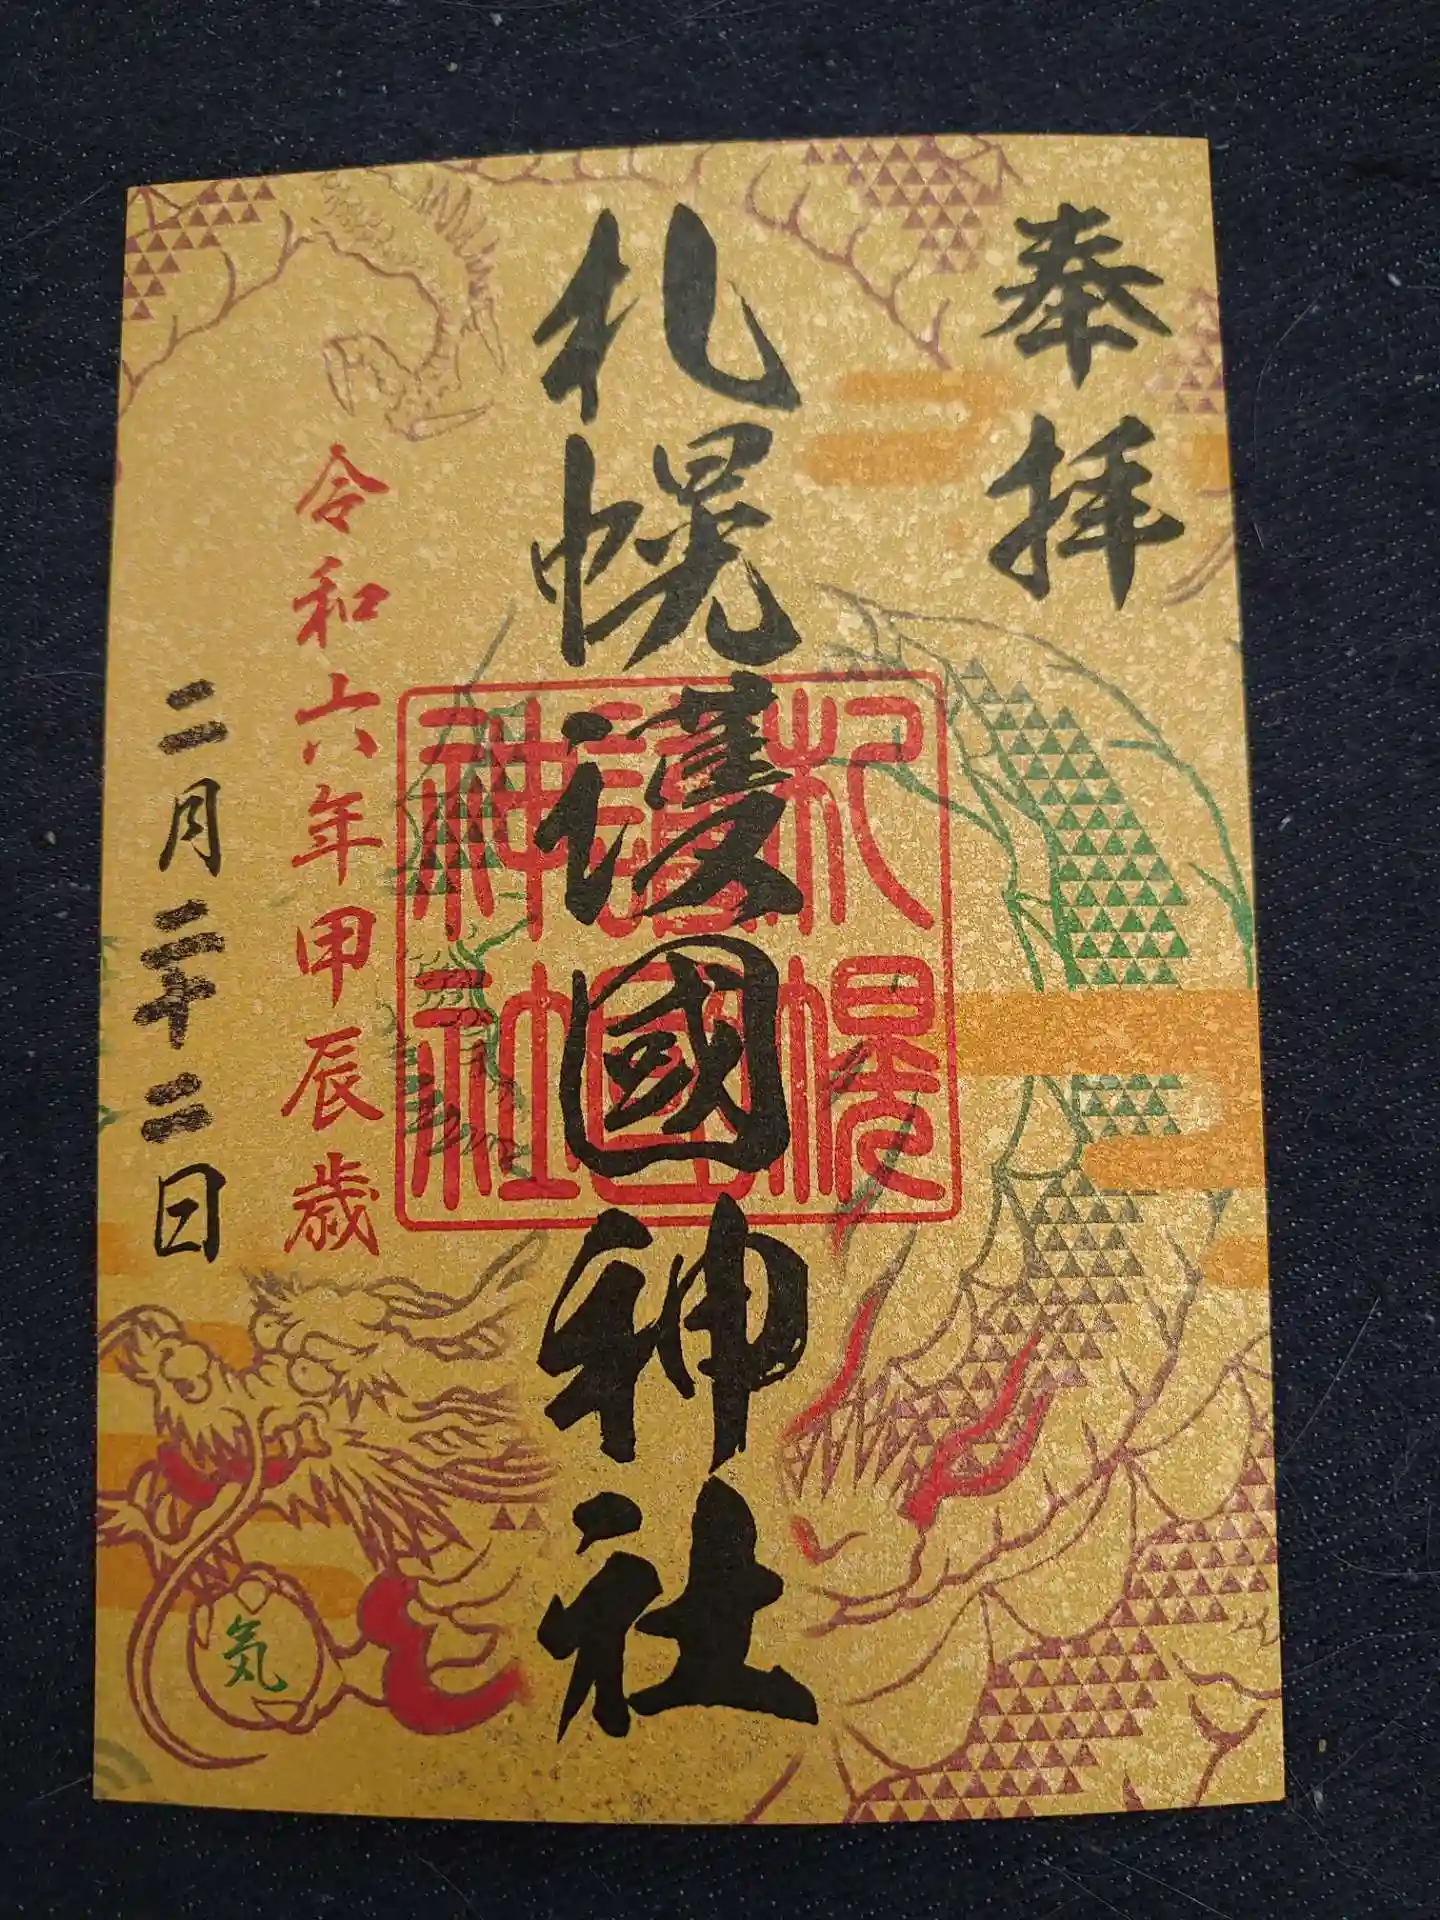 奉拝
札幌護國神社
札幌
護國
神社
令和六年甲辰歳
二月二十二日
気